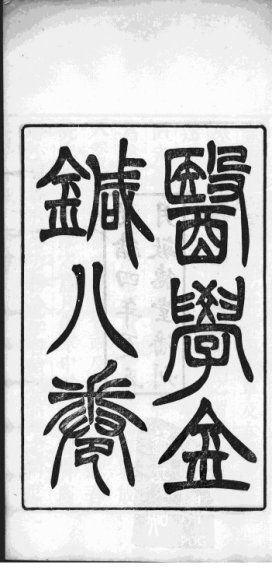 醫學金
鍼八卷